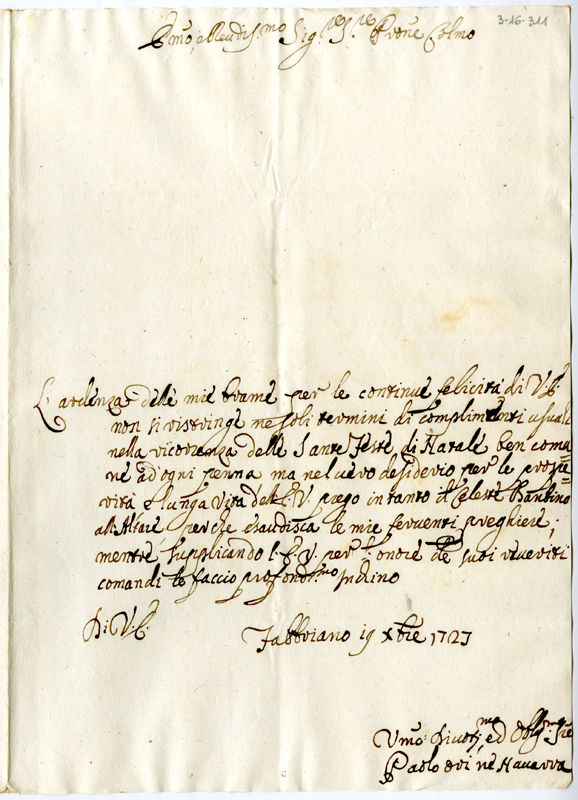 3-16-311
Emo, e Reudis.mo Sig.re S.re Prone Colmo
L'ardenza delle mie brame per le continue felicità di V.E.
non si ristringe ne soli termini di complimenti usuali
nella ricorrenza delle Sante Feste di Natale ben comu=
ne ad'ogni penna ma nel vero desiderio per le prospe=
rità e lunga vita dell'E.V. prego in tanto il Celeste Bambino
all'Altare perche esaudisca le mie ferventi preghiere;
mentre supplicando l'E.V. per l'onore de suoi riveriti
comandi le faccio profondis.mo inchino
Di V.E.
Fabbriano 19 Xbre 1727
Vmo Divotis.mo, ed Obbl.mo Sre
Paolo